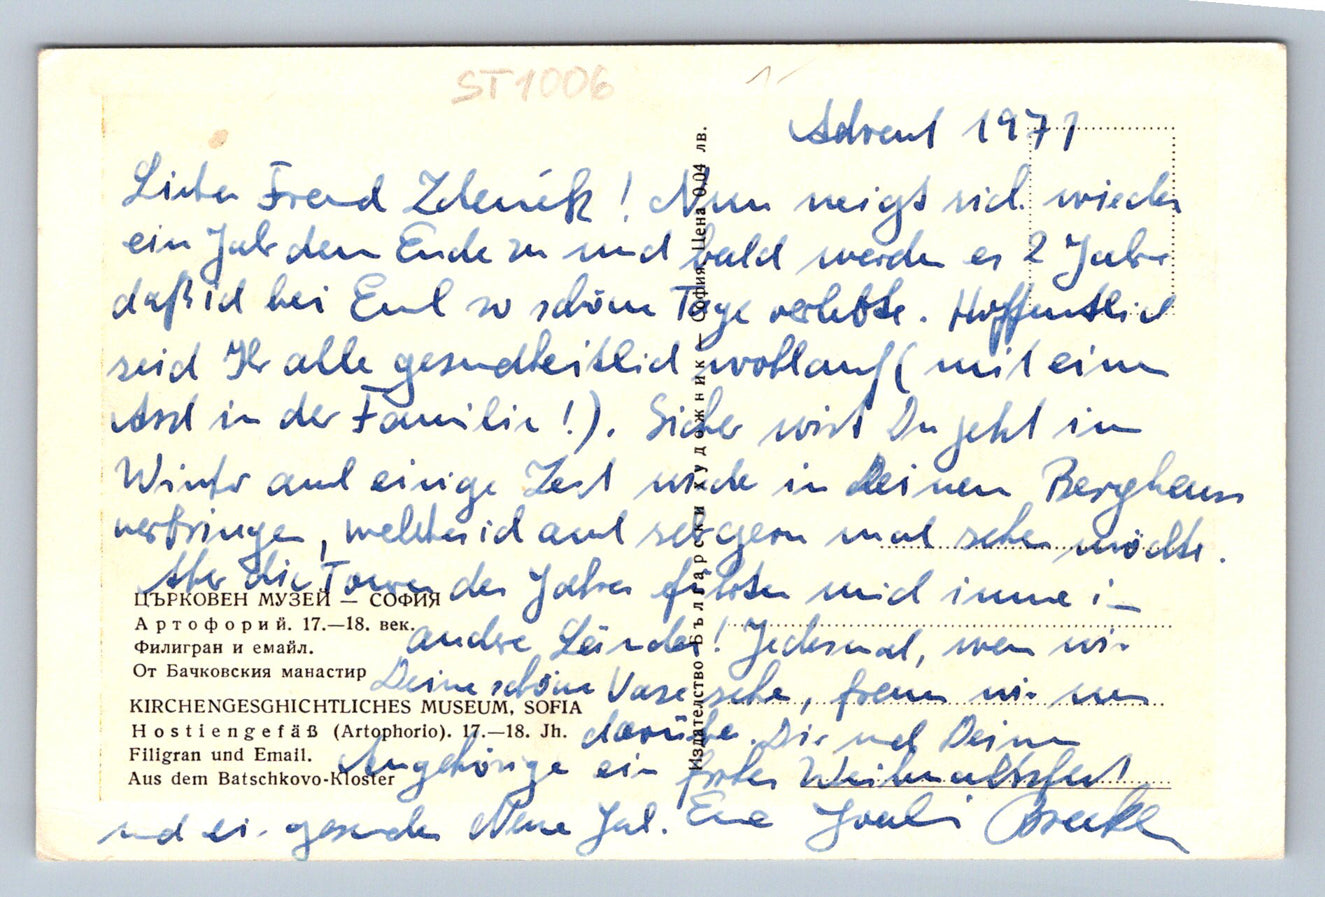 ST1006
Advent 1971
Lieber Freund Zdeněk! Nun neigt sich wieder
ein Jahr dem Ende zu und bald werden es 2 Jahre
daß ich bei Euch so schöne Tage verlebte. Hoffentlich
seid Ihr alle gesundheitlich wohlauf (mit einem
Arzt in der Familie!). Sicher wirst Du jetzt im
Winter auch einige Zeit wieder in Deinem Berghaus
verbringen, welches ich auch sehr gern mal sehen möchte.
Aber die Touren des Jahres führten mich immer in
andre Länder! Jedesmal, wenn wir
Deine schöne Vase sehen, freuen wir uns
darüber. Dir und Deinen
Angehörigen ein frohes Weihnachtsfest
und ein gesundes Neue Jahr. Euer
ЦЪРКОВЕН МУЗЕЙ — СОФИЯ
Артофорий. 17.—18. век.
Филигран и емайл.
От Бачковския манастир
KIRCHENGESGHICHTLICHES MUSEUM, SOFIA
Hostiengefäß (Artophorio). 17.—18. Jh.
Filigran und Email.
Aus dem Batschkovo-Kloster
Издателство Български художник — София. Цена 0.04 лв.